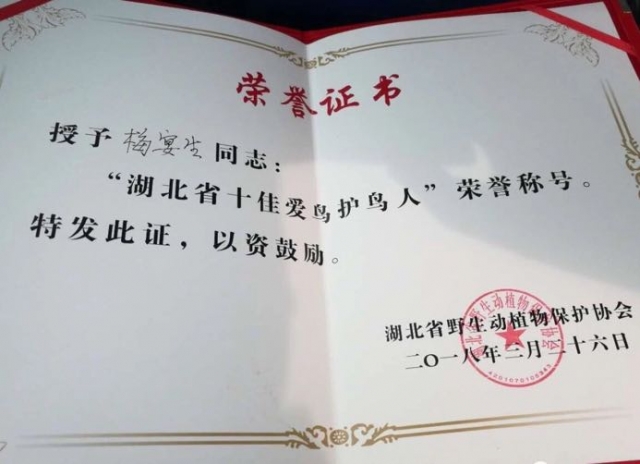 荣誉证书
授予梅宴生同志：
“湖北省十佳爱鸟护鸟人”荣誉称号。
特发此证，以资鼓励。
湖北省野生动植物保护协会
二〇一八年三月二十六日